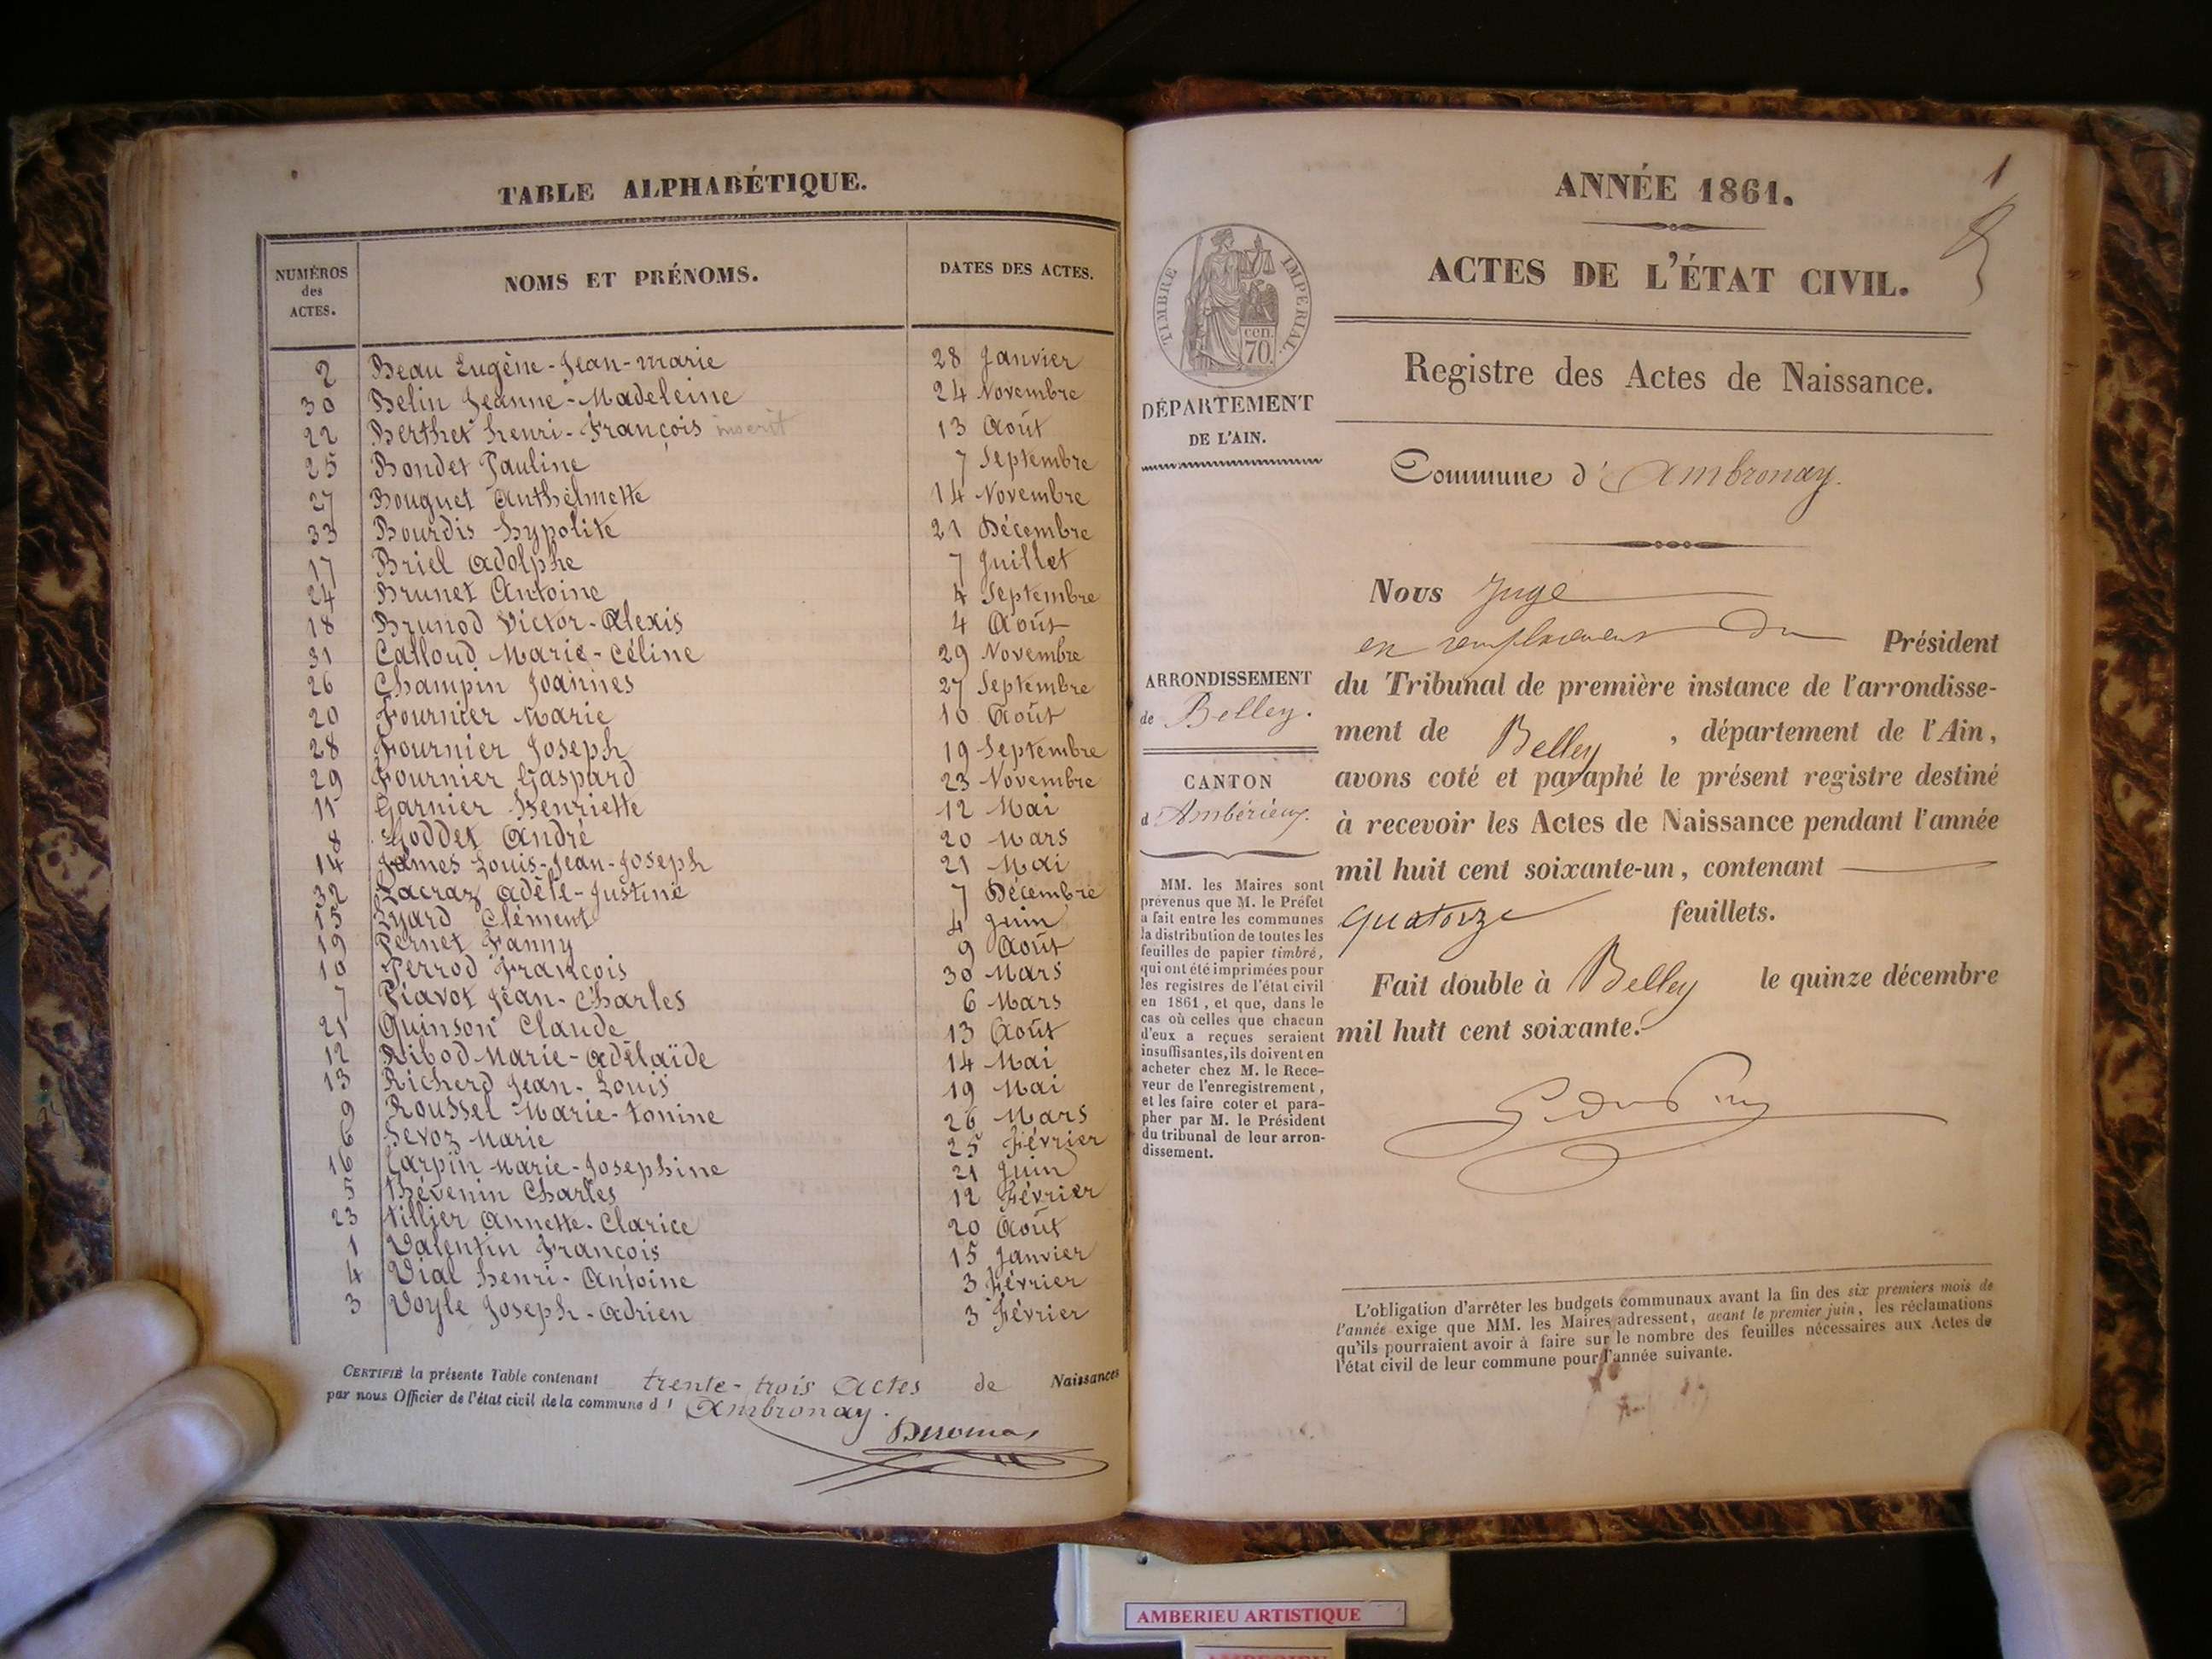 TABLE ALPHABÉTIQUE.
NUMÉROS des ACTES. NOMS ET PRÉNOMS. DATES DES ACTES.
2 Beau Eugène-Jean-marie 28 Janvier
30 Belin Jeanne-Madeleine 24 Novembre
22 Berthet henri-François inscrit 13 Août
25 Bondet Pauline 7 Septembre
27 Bouguet Anthelmette 14 Novembre
33 Bourdis hypolite 21 Décembre
17 Briel Adolphe 7 Juillet
24 Brunet Antoine 4 Septembre
18 Brunod Victor-Alexis 4 Août
31 Calloud Marie-Céline 29 Novembre
26 Champin Joannes 27 Septembre
20 Fournier Marie 10 Août
28 Fournier Joseph 19 Septembre
29 Fournier Gaspard 23 Novembre
11 Garnier henriette 12 Mai
8 Goddet André 20 Mars
14 James Louis-Jean-Joseph 21 Mai
32 Lacraz Adèle-Justine 7 Décembre
15 Lyard Clément 4 Juin
19 Pernet Fanny 9 Août
10 Perrod François 30 Mars
7 Piavot Jean-Charles 6 Mars
21 Quinson Claude 13 Août
12 Ribod Marie-Adélaïde 14 Mai
13 Richerd Jean-Louis 19 Mai
9 Roussel Marie-tonine 26 Mars
6 Sevoz Marie 25 Février
16 Tarpin Marie-Josephine 21 Juin
5 thévenin Charles 12 Février
23 tillier Annette-Clarice 20 Août
1 Valentin François 15 Janvier
4 Vial henri-Antoine 3 Février
3 Voyle Joseph-Adrien 3 Février
CERTIFIÉ la présente Table contenant trente-trois Actes de Naissances
par nous Officier de l'état civil de la commune d' Ambronay.
ANNÉE 1861.
1
ACTES DE L'ÉTAT CIVIL.
TIMBRE IMPERIAL.
cen. 70.
Registre des Actes de Naissance.
DÉPARTEMENT
DE L'AIN.
Commune d' Ambronay.
Nous Juge
en remplacement du Président
du Tribunal de première instance de l'arrondisse-
ment de Belley, département de l'Ain,
avons coté et paraphé le présent registre destiné
à recevoir les Actes de Naissance pendant l'année
mil huit cent soixante-un, contenant
quatorze feuillets.
Fait double à Belley le quinze décembre
mil huit cent soixante.
ARRONDISSEMENT
de Belley.
CANTON
d'Ambérieux.
MM. les Maires sont
prévenus que M. le Préfet
a fait entre les communes
la distribution de toutes les
feuilles de papier timbré,
qui ont été imprimées pour
les registres de l'état civil
en 1861, et que, dans le
cas où celles que chacun
d'eux a reçues seraient
insuffisantes, ils doivent en
acheter chez M. le Rece-
veur de l'enregistrement,
et les faire coter et para-
pher par M. le Président
du tribunal de leur arron-
dissement.
L'obligation d'arrêter les budgets communaux avant la fin des six premiers mois de
l'année exige que MM. les Maires adressent, avant le premier juin, les réclamations
qu'ils pourraient avoir à faire sur le nombre des feuilles nécessaires aux Actes de
l'état civil de leur commune pour l'année suivante.
AMBERIEU ARTISTIQUE